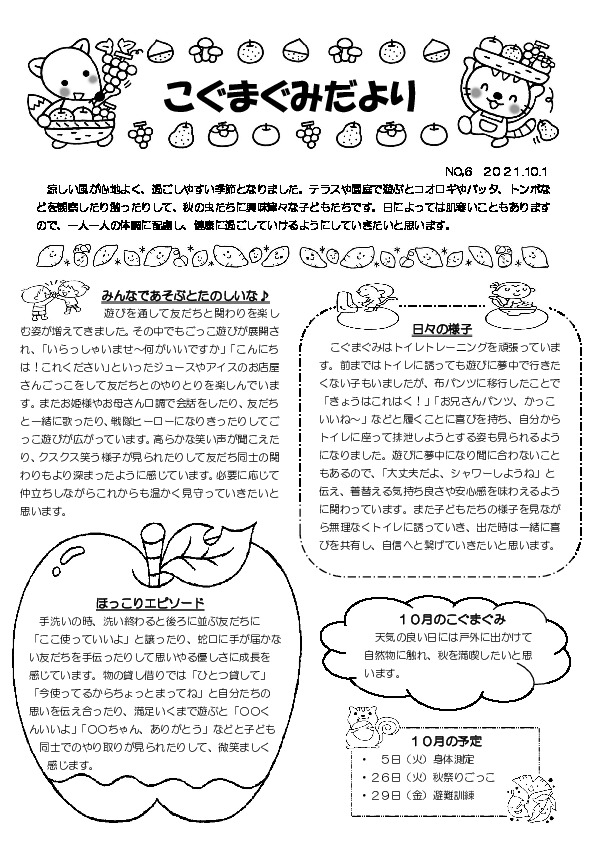 こぐまぐみだより
NO,6　2021.10.1
涼しい風が心地よく、過ごしやすい季節となりました。テラスや園庭で遊ぶとコオロギやバッタ、トンボな
どを観察したり触ったりして、秋の虫たちに興味津々な子どもたちです。日によっては肌寒いこともあります
ので、一人一人の体調に配慮し、健康に過ごしていけるようにしていきたいと思います。
みんなであそぶとたのしいな♪
遊びを通して友だちと関わりを楽し
む姿が増えてきました。その中でもごっこ遊びが展開さ
れ、「いらっしゃいませ～何がいいですか」「こんにち
は！これください」といったジュースやアイスのお店屋
さんごっこをして友だちとのやりとりを楽しんでいま
す。またお姫様やお母さん口調で会話をしたり、友だち
と一緒に歌ったり、戦隊ヒーローになりきったりしてご
っこ遊びが広がっています。高らかな笑い声が聞こえた
り、クスクス笑う様子が見られたりして友だち同士の関
わりもより深まったように感じています。必要に応じて
仲立ちしながらこれからも温かく見守っていきたいと
思います。
日々の様子
こぐまぐみはトイレトレーニングを頑張っていま
す。前まではトイレに誘っても遊びに夢中で行きた
くない子もいましたが、布パンツに移行したことで
「きょうはこれはく！」「お兄さんパンツ、かっこ
いいね～」などと履くことに喜びを持ち、自分から
トイレに座って排泄しようとする姿も見られるよう
になりました。遊びに夢中になり間に合わないこと
もあるので、「大丈夫だよ、シャワーしようね」と
伝え、着替える気持ち良さや安心感を味わえるよう
に関わっています。また子どもたちの様子を見なが
ら無理なくトイレに誘っていき、出た時は一緒に喜
びを共有し、自信へと繋げていきたいと思います。
ほっこりエピソード
手洗いの時、洗い終わると後ろに並ぶ友だちに
「ここ使っていいよ」と譲ったり、蛇口に手が届かな
い友だちを手伝ったりして思いやる優しさに成長を
感じています。物の貸し借りでは「ひとつ貸して」
「今使ってるからちょっとまってね」と自分たちの
思いを伝え合ったり、満足いくまで遊ぶと「〇〇く
んいいよ」「〇〇ちゃん、ありがとう」などと子ども
同士でのやり取りが見られたりして、微笑ましく
感じます。
１０月のこぐまぐみ
天気の良い日には戸外に出かけて
自然物に触れ、秋を満喫したいと思
います。
１０月の予定
・　５日（火）身体測定
・２６日（火）秋祭りごっこ
・２９日（金）避難訓練